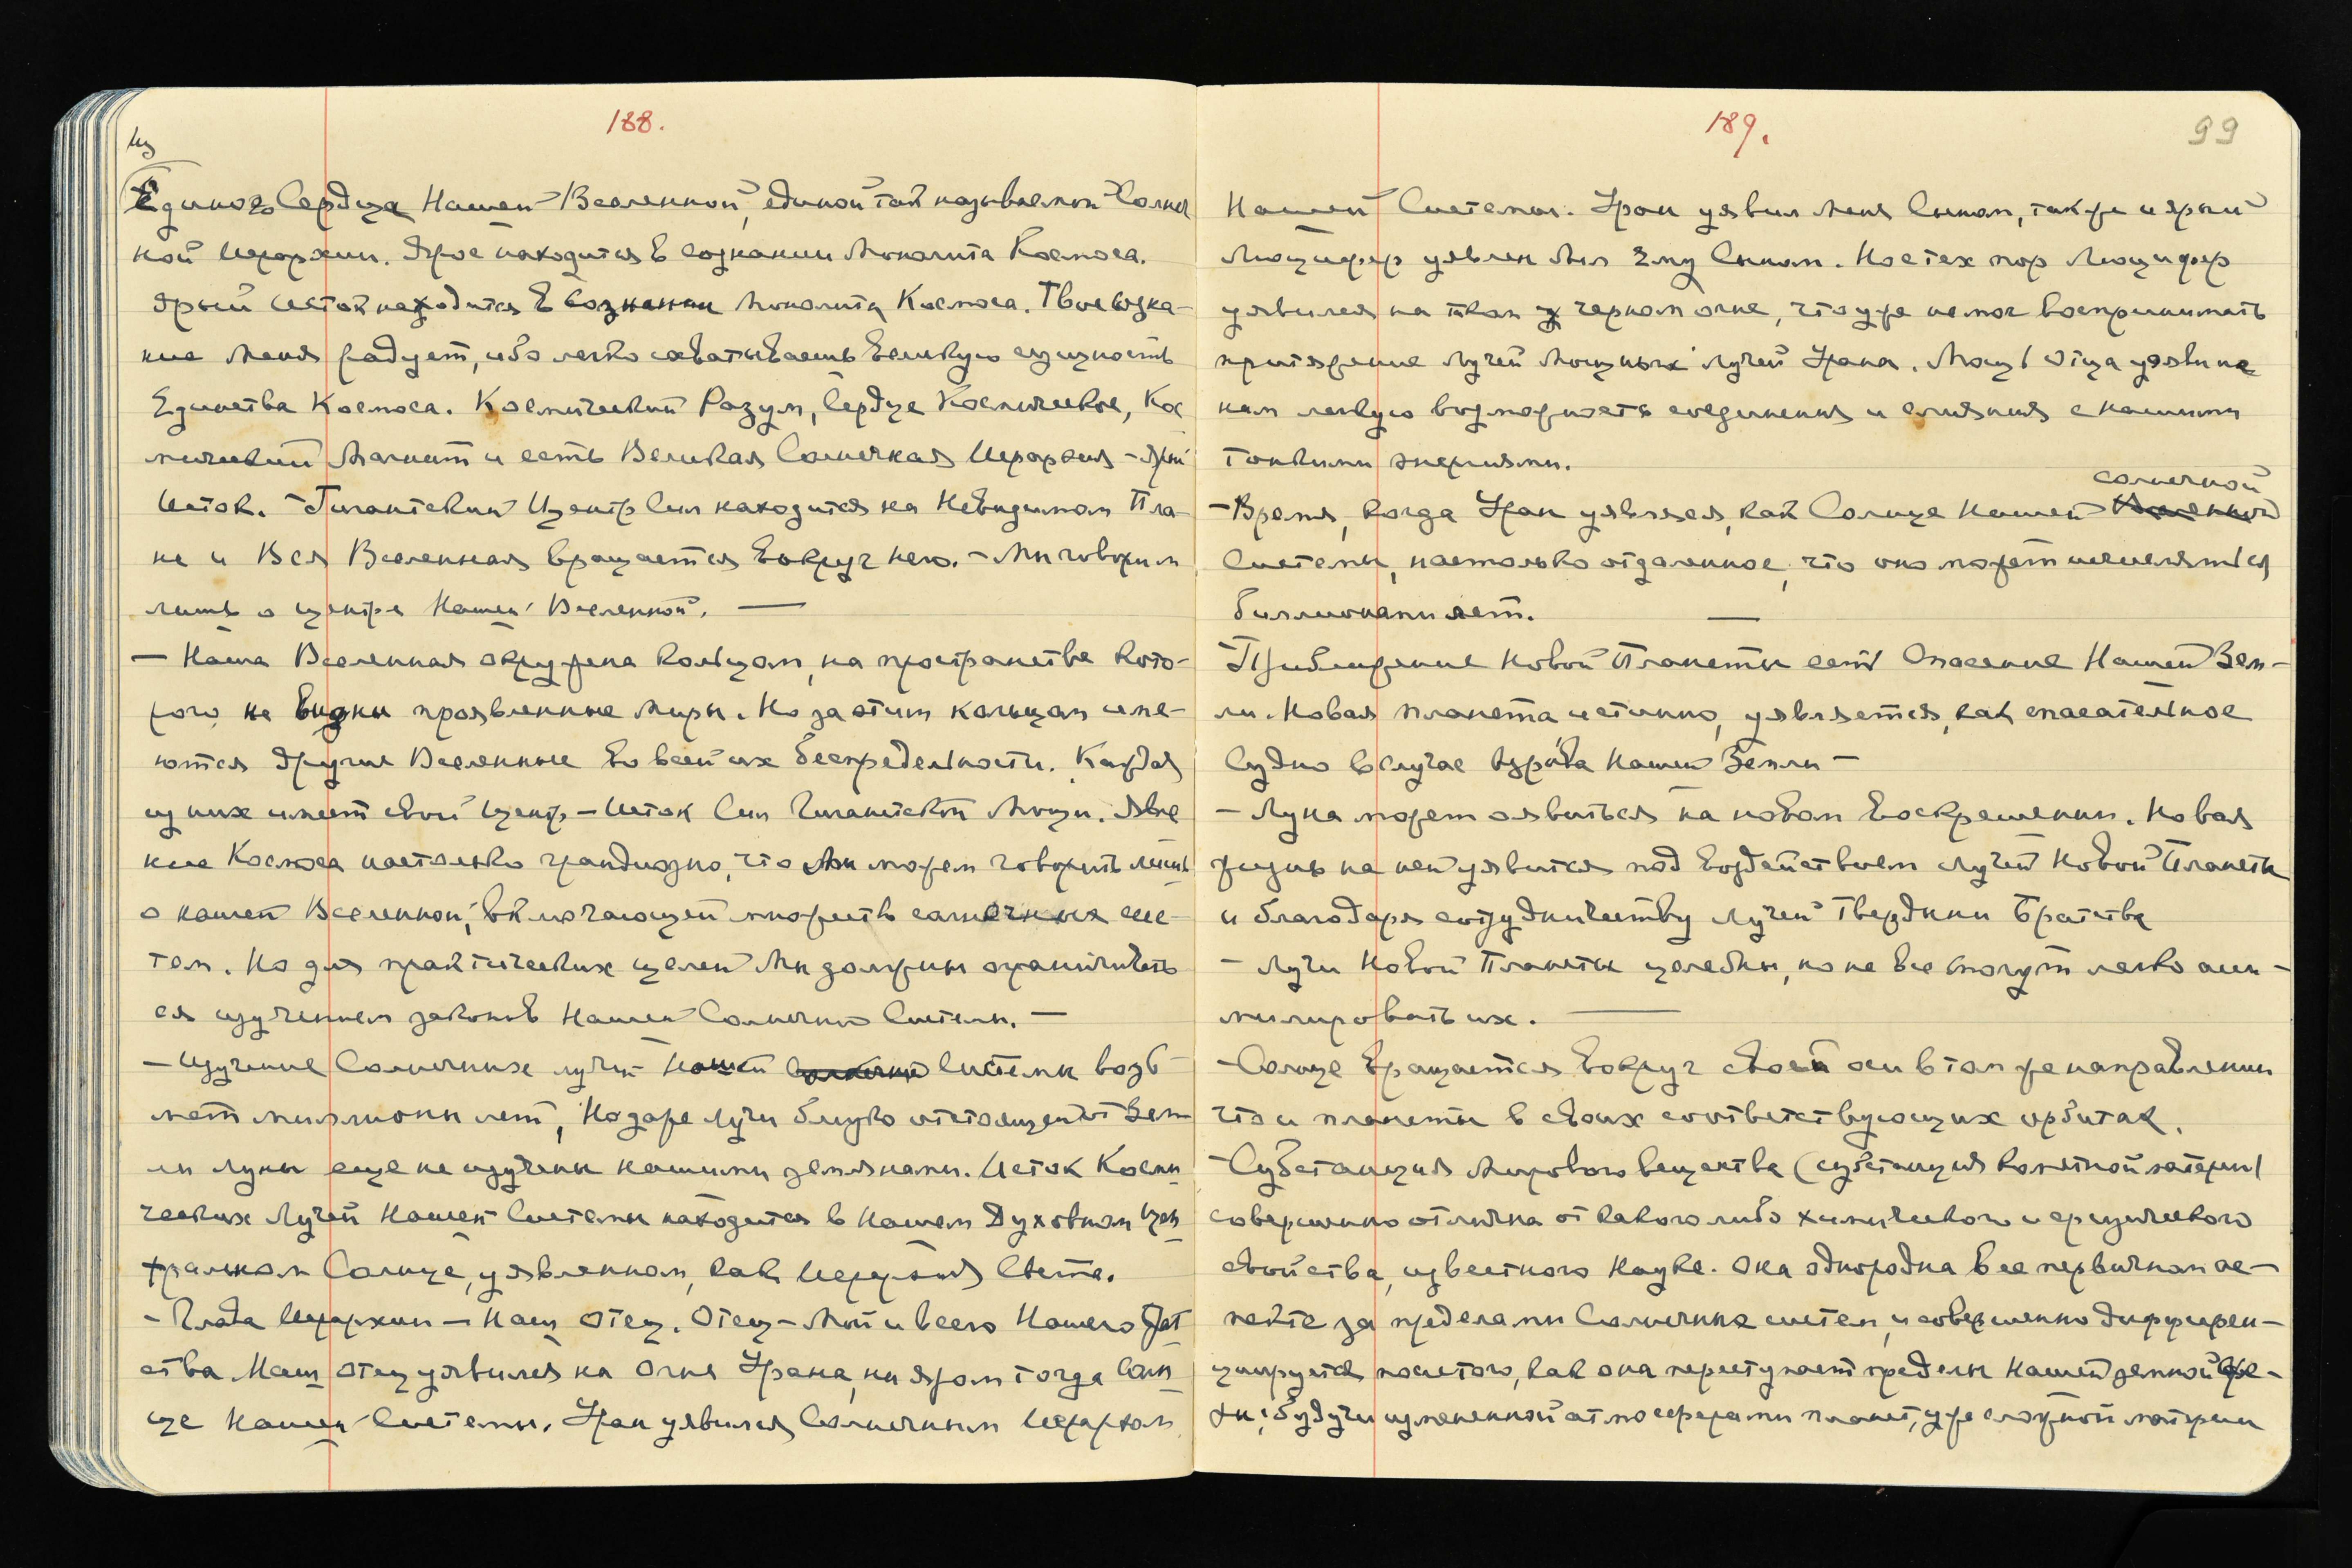 188.
Из
Единого Сердца Нашей Вселенной, единой так называемой Солнеч
ной Иерархии. Ярое находится в сознании Монолита Космоса.
Ярый Исток находится в сознании Монолита Космоса. Твое созна-
ние Меня радует, ибо легко схватываешь великую сущность
Единства Космоса. Космический Разум, Сердце Космическое, Кос
мический Магнит и есть Великая Солнечная Иерархия – Ярый
Исток. – Гигантский Центр Сил находится на Невидимом Пла
не и Вся Вселенная вращается вокруг него. – Мы говорим
лишь о центре Нашей Вселенной. —
— Наша Вселенная окружена кольцом, на пространстве кото-
рого не видны проявленные миры. Но за этим кольцом име-
ются другие Вселенные во всей их беспредельности. Каждая
из них имеет свой Центр – Исток Сил Гигантской Мощи. Явле
ние Космоса настолько грандиозно, что Мы можем говорить лишь
о нашей Вселенной, включающей множеств солнечных сис-
тем. Но для практических целей Мы должны ограничивать
ся изучением законов Нашей Солнечной Системы. —
— Изучение Солнечных лучей Нашей Солнечной Системы возь
мет миллионы лет, Но даже лучи близко отстоящей от Зем
ли луны еще не изучены нашими землянами. Исток Косми
ческих Лучей Нашей Системы находится в Нашем Духовном Цен
тральном Солнце, уявленном, как Иерархия Света.
– Глава Иерархии – Наш Отец. Отец – Мой и всего Нашего Бат
ства. Наш Отец уявился на Огне Урана, на яром тогда Солн
це Нашей Системы. Уран уявился Солнечным Иерархом
189.
99
Нашей Системы. Уран уявил Меня Сыном, также и ярый
Люцифер уявлен был Ему Сыном. Но с тех пор Люцифер
уявился на таком черном огне, что уже не мог воспринимать
притяжение Лучей Мощных лучей Урана. Мощь Отца уявила
нам легкую возможность соединения и слияния с нашими
тонкими энергиями.
солнечной
– Время, когда Уран уявлялся, как Солнце Нашей Вселенной
Системы, настолько отдаленное, что оно может исчисляться
биллионами лет. —
– Приближение Новой Планеты есть Спасение Нашей Зем-
ли. Новая планета истинно, уявляется, как спасательное
Судно в случае взрыва Нашей Земли –
– Луна может оявиться на новом воскрешении. Новая
жизнь на ней уявится под воздействием лучей Новой Планеты
и благодаря сотрудничеству лучей Твердыни Братства
– Лучи Новой Планеты целебны, но не все смогут легко асси-
милировать их. —
– Солнце вращается вокруг своей оси в том же направлении
что и планеты в своих соответствующих орбитах.
– Субстанция Мирового вещества (субстанция кометной материи)
совершенно отлична от какого либо химического и физического
свойства, известного Науке. Она однородна в ее первичном ас-
пекте за пределами Солнечных систем, и совершенно дифферен-
цируется после того, как она переступает пределы Нашей земной сфе-
ры; будучи измененной атмосферами планет, уже сложной материи